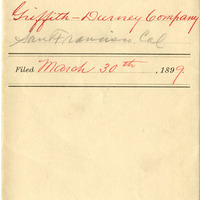 Griffith-Durney Company
San Francisco, Cal
Filed March 30th, 1899.